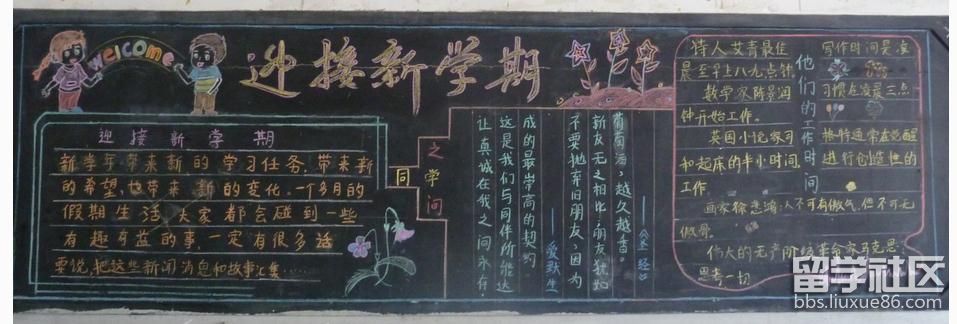 welcome
迎接新学期
迎接新学期
新学年带来新的学习任务,带来新
的希望,也带来 新的变化。一个多月的
假期生活,大家都会碰到一些
有趣有益的事,一定有很多话
要说,把这些新闻消息和故事汇集……
同学之间
葡萄酒,越久越香。
新友无之相比,朋友犹如
不要抛弃旧朋友,因为
——爱默生
成的最崇高的契约。
这是我们与同伴所能达
让真诚在我之间永存,
他们的工作时间
诗人艾青最佳 写作时间是凌
晨至早上八九点钟。
数学家陈景润 习惯在凌晨三点
钟开始工作。
英国小说家司 格特通常在觉醒
和起床的半小时间 进行创造性的
工作
画家徐悲鸿:人不可有傲气,但不可无
傲骨。
伟大的无产阶级革命家马克思:
思考一切
留学社区
bbs.liuxue86.com